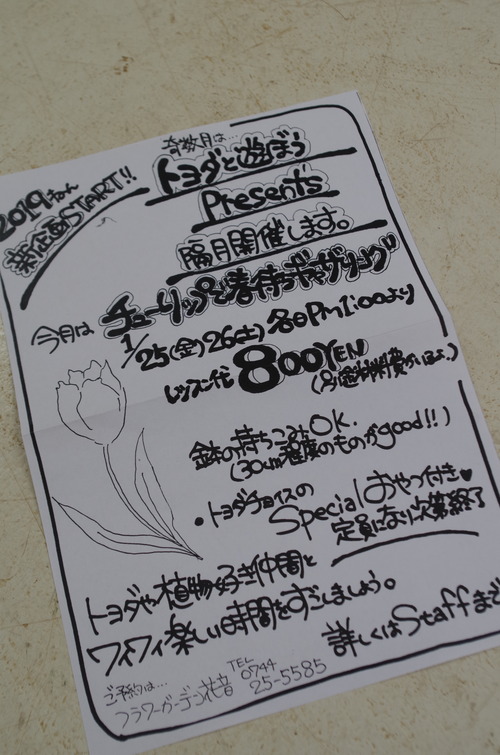 2019年
新企画START!!
奇数月は…
トヨダと遊ぼう
Presents
隔月開催します。
今月は チューリップと春待ちギャザリング
1/25(金)26(土)各日Pm1:00より
レッスン代 800YEN
(別途材料費がいるよ。)
鉢の持ちこみOK.
(30cm程度のものがgood!!)
・トヨダチョイスの
Specialおやつ付き♥
定員になり次第終了
トヨダや植物好き仲間と
ワイワイ楽しい時間をすごしましょう。
詳しくはStaffまで
ご予約は…
フラワーガーデン花音
TEL
0744
25-5585